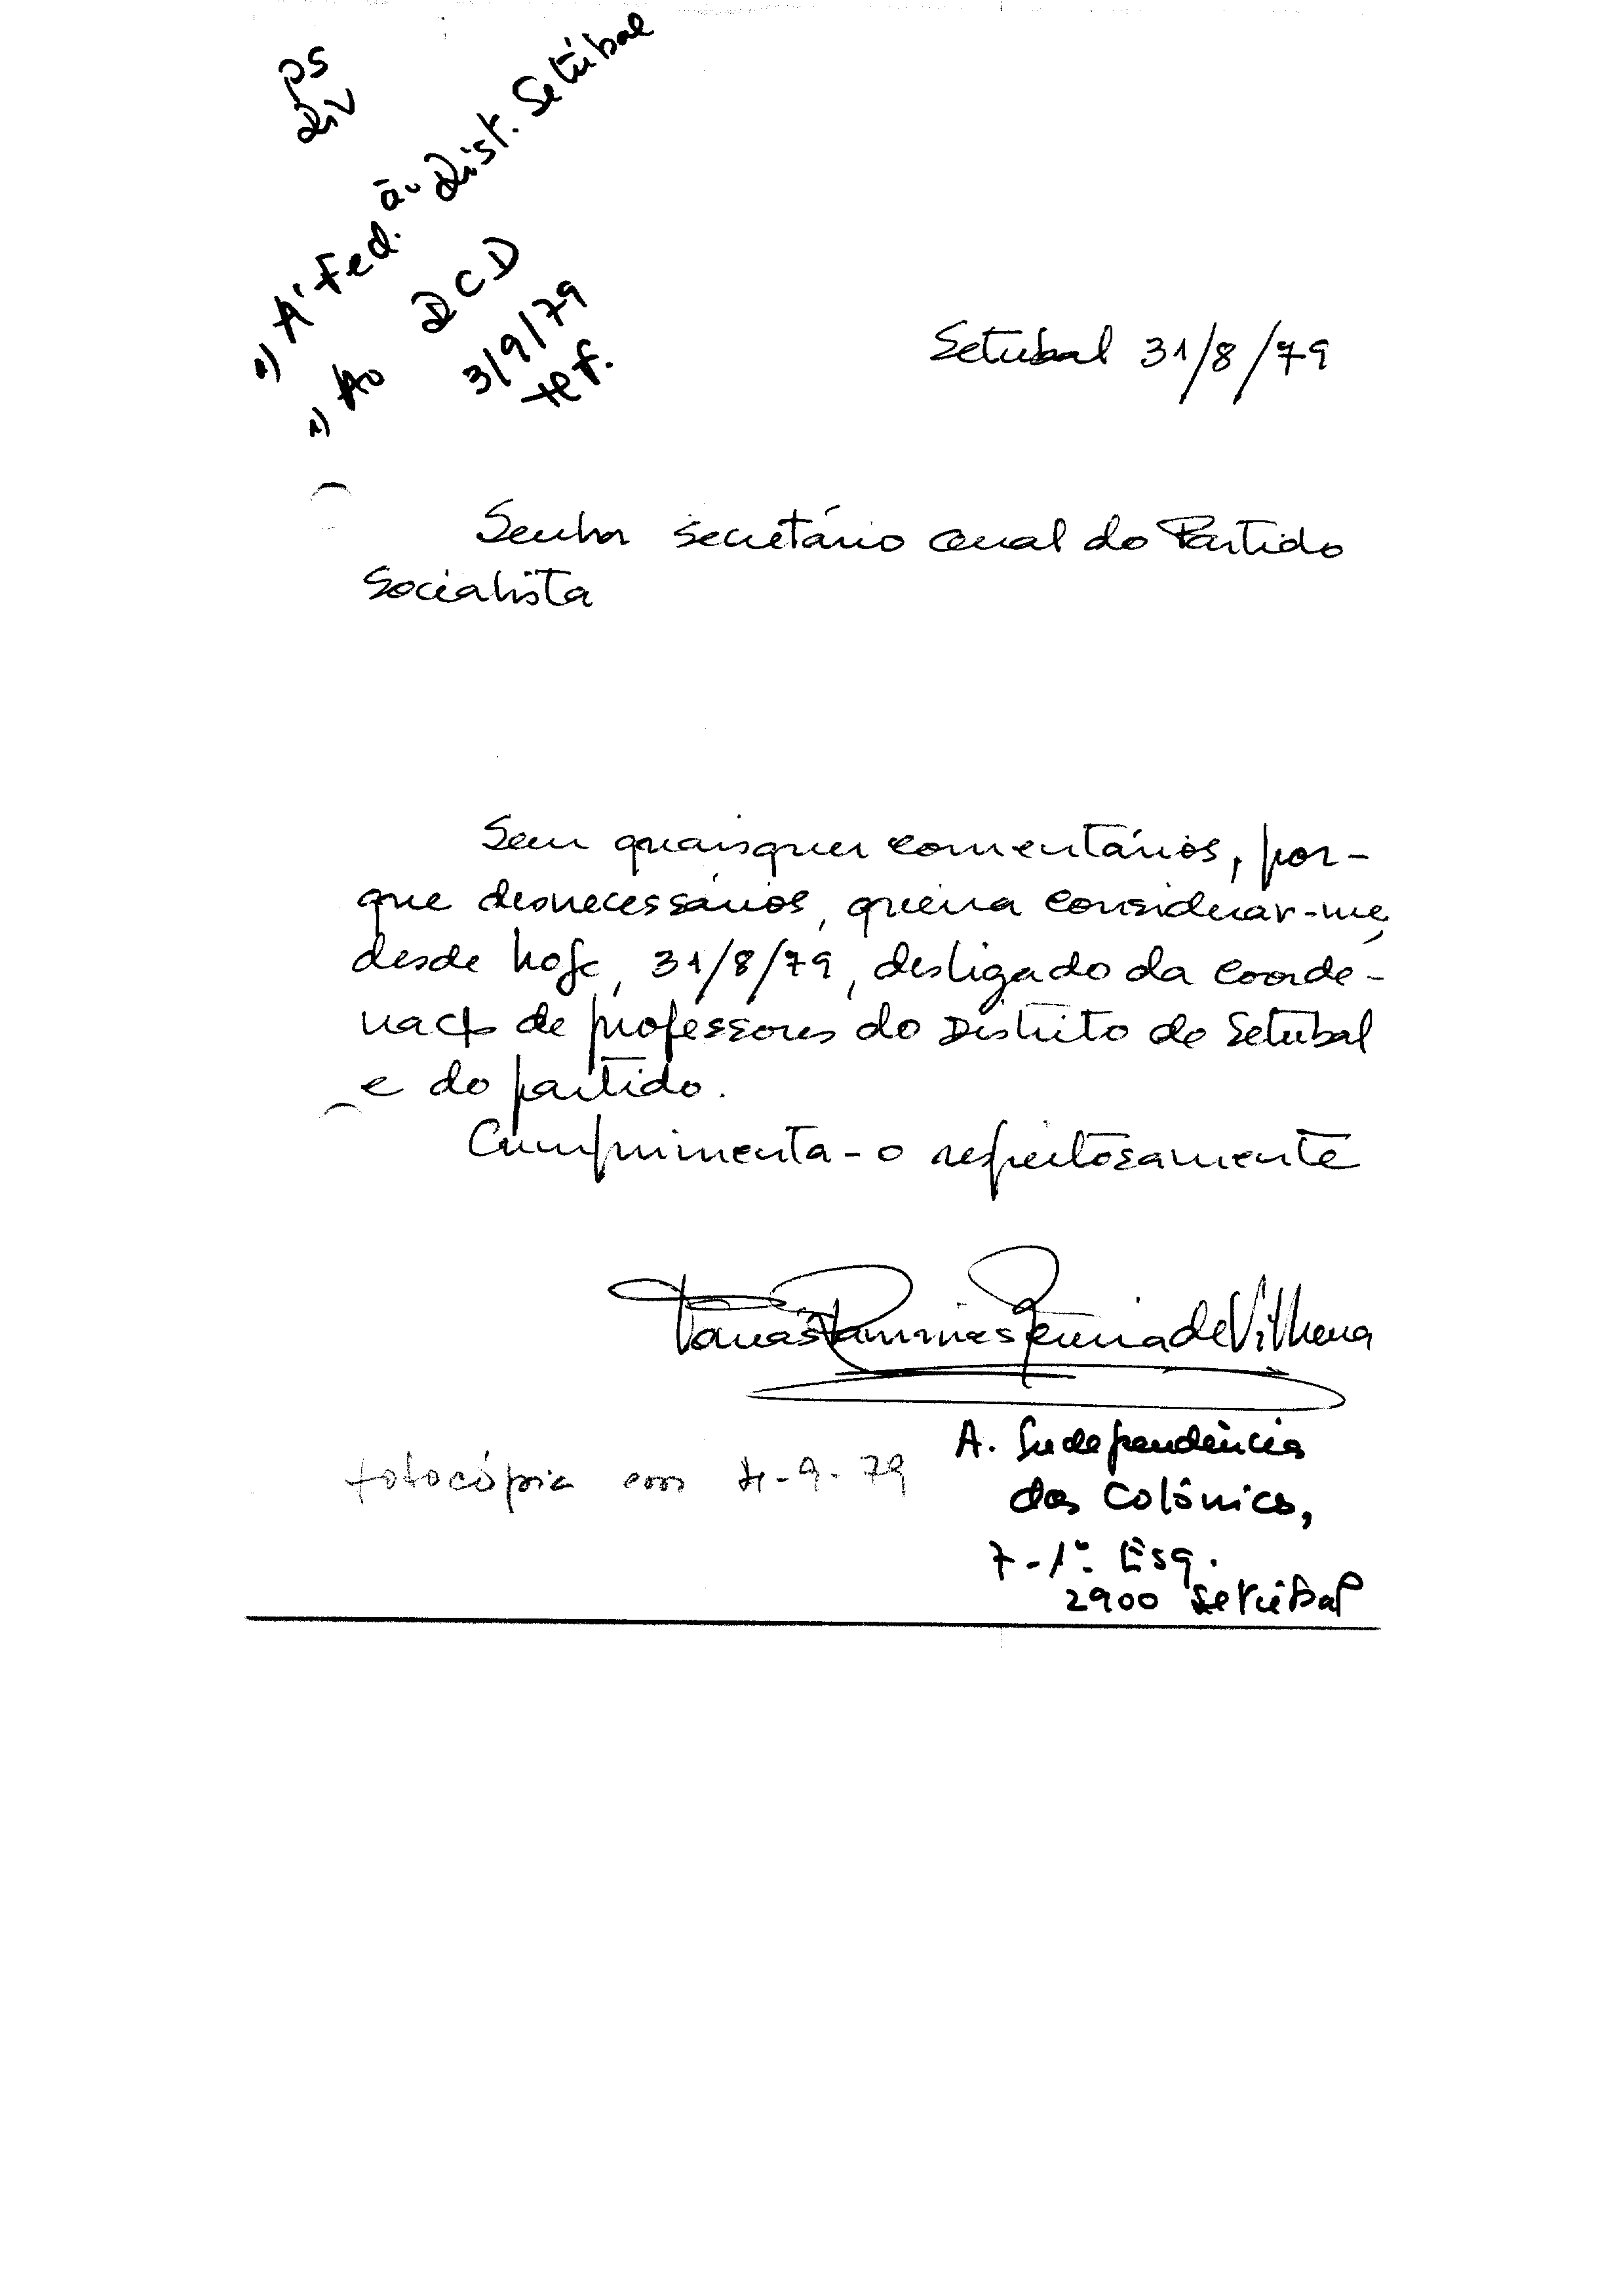 PS
Div
1) À Fed.ão Dist. Setúbal
2) Ao DCD
3/9/79
Setubal 31/8/79
Senhor secretário Geral do Partido
Socialista
Sem quaisquer comentários, por-
que desnecessários, queira considerar-me,
desde hoje, 31/8/79, desligado da coorde-
nação de professores do Distrito de Setúbal
e do partido.
Cumprimenta-o respeitosamente
Tomás Ramires Ferreira de Vilhena
A. Independência
das Colónias,
fotocópia em 4-9-79
7-1º Esq.
2900 Setúbal